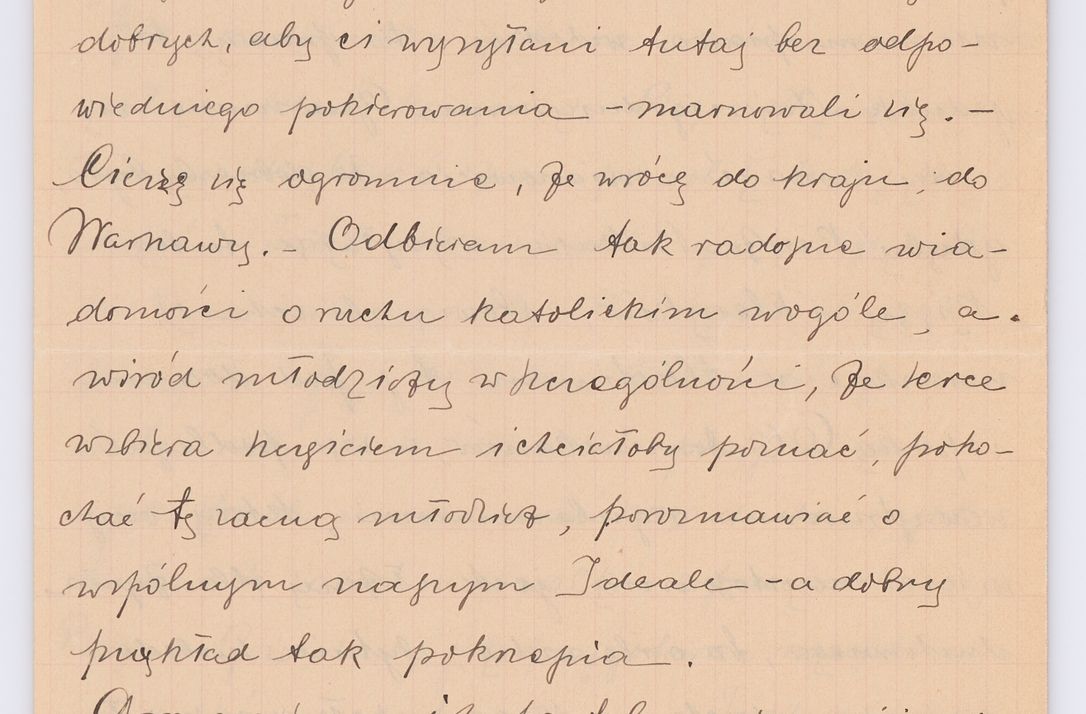 dobrych, aby ci wysyłani tutaj bez odpo-
wiedniego pokierowania - marnowali się. -
Cieszę się ogromnie, że wrócę do kraju, do
Warszawy. - Odbieram tak radosne wia-
domości o ruchu katolickim wogóle, a
wśród młodzieży w szczególności, że serce
wzbiera szczęściem i chciałoby poznać, poko-
chać tę zacną młodzież, porozmawiać o
wspólnym naszym Ideale - a dobry
przykład tak pokrzepia.